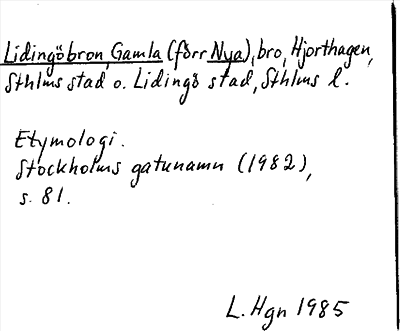 Lidingöbron, Gamla (förr Nya), bro, Hjorthagen,
Sthlms stad o. Lidingö stad, Sthlms l.
Etymologi.
Stockholms gatunamn (1982),
s. 81.
L. Hgn 1985